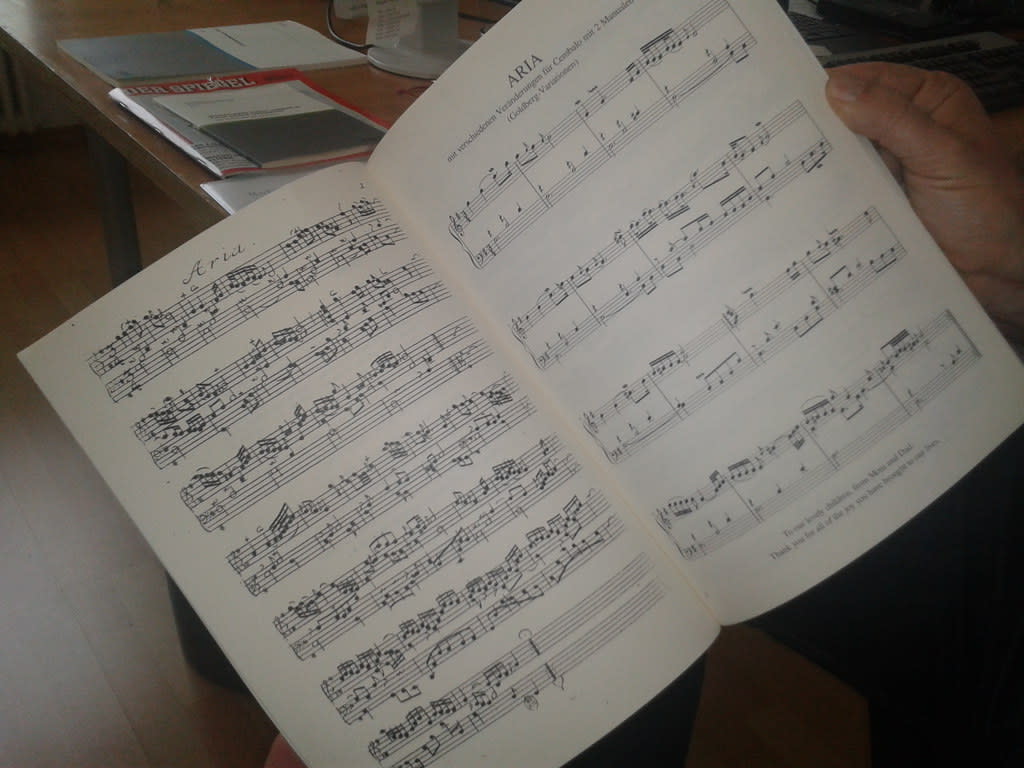 DER SPIEGEL
Aria.
ARIA
mit verschiedenen Veränderungen für Cembalo mit 2 Manualen
(Goldberg-Variationen)
To our lovely children, from Mom and Dad:
Thank you for all of the joy you have brought to our lives.